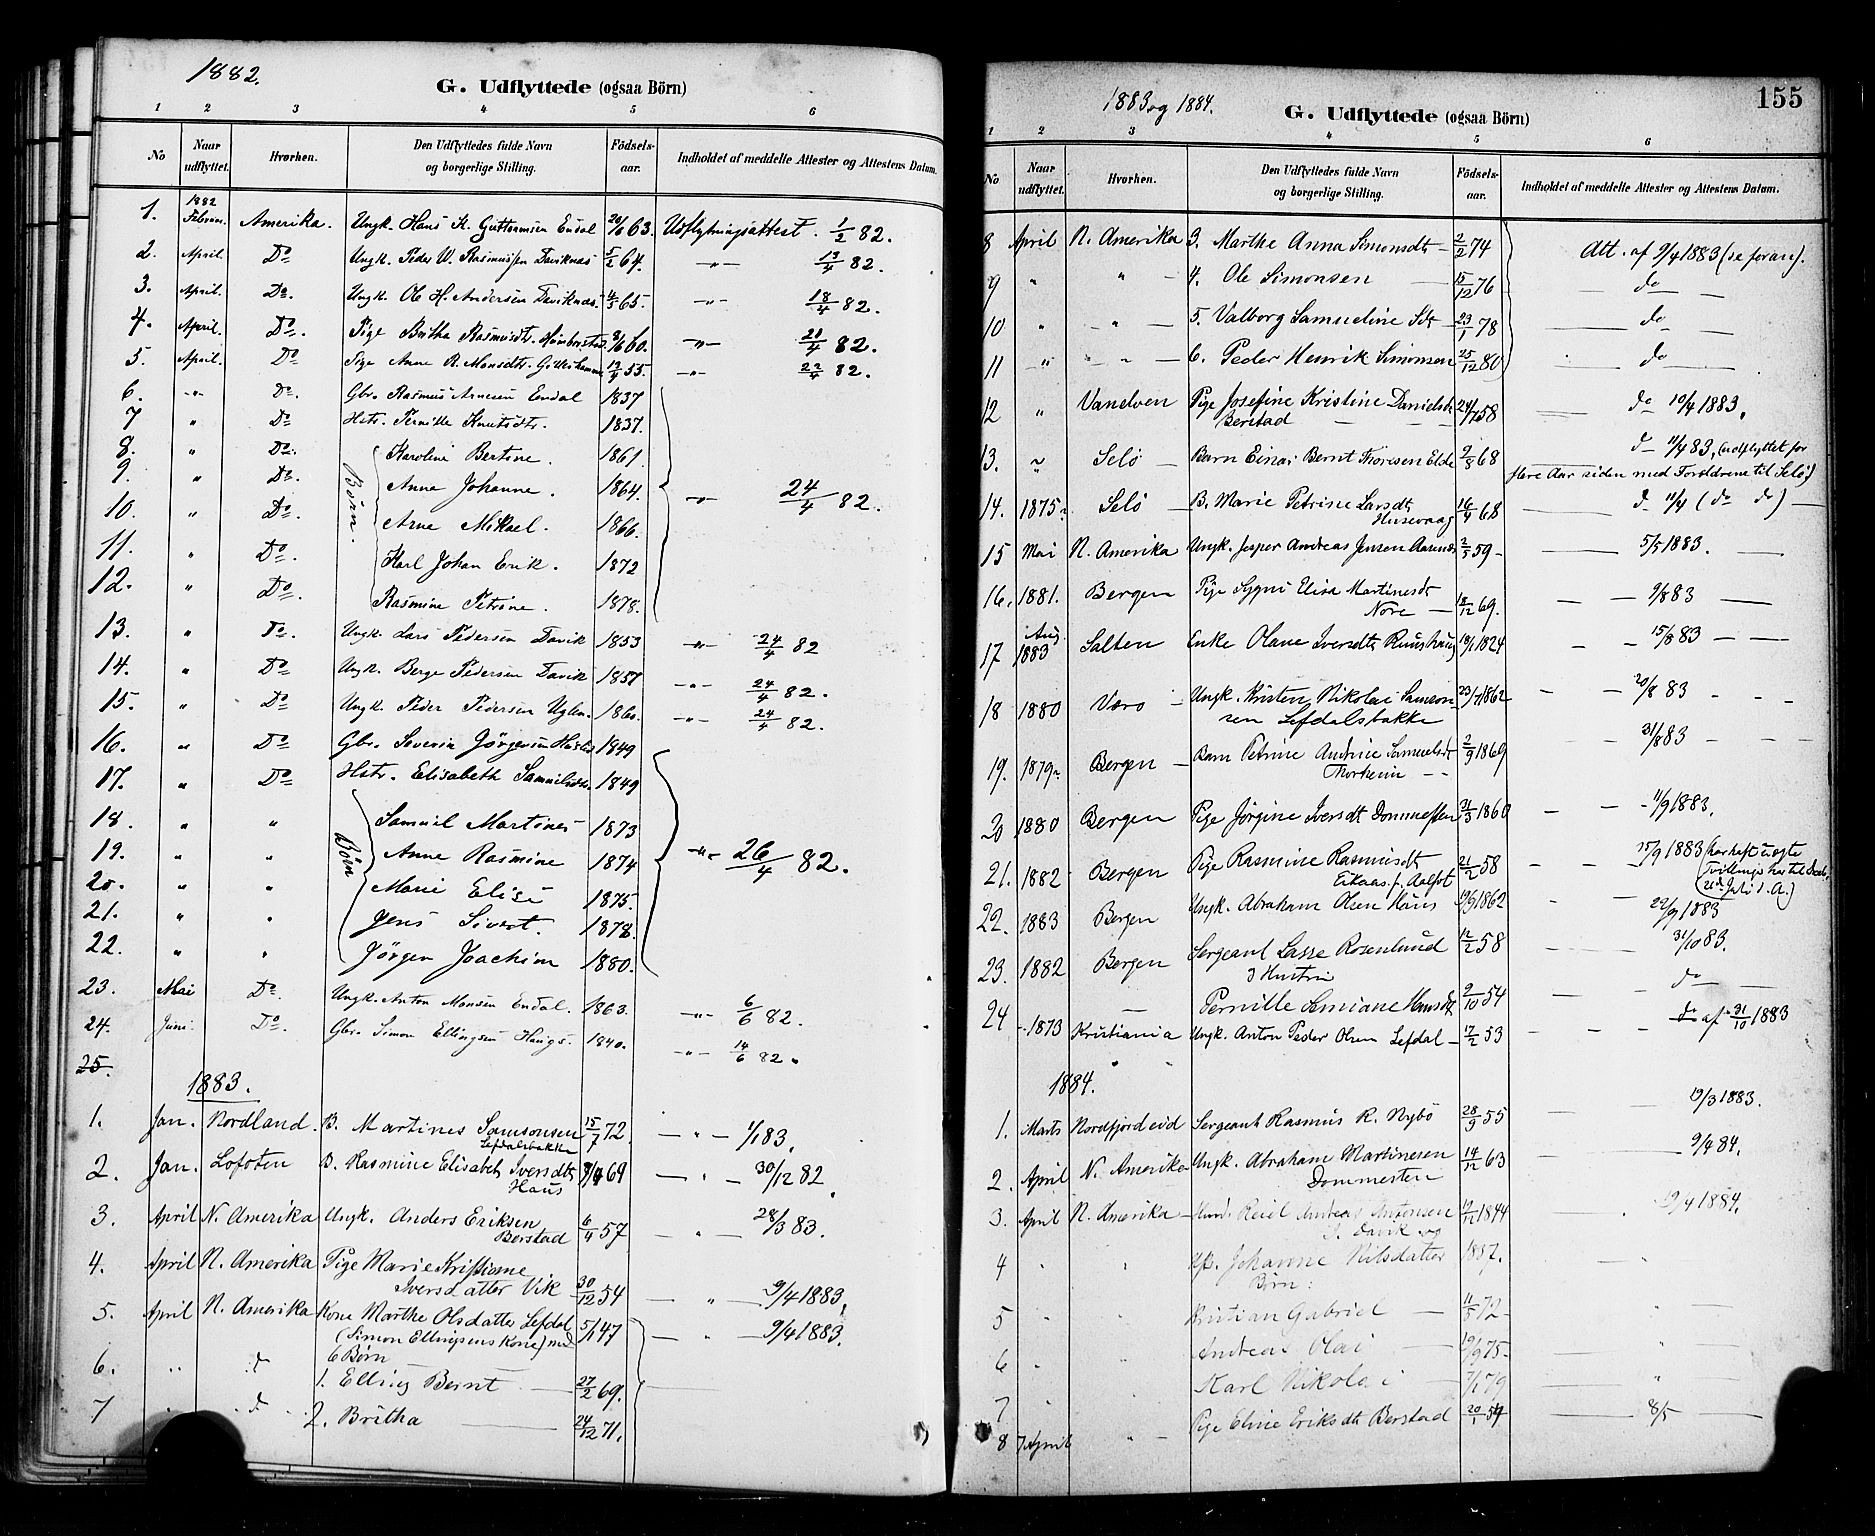 1882.
G. Udflyttede (ogsaa Börn)
1 2 3 4 5 6
No Naar udflyttet. Hvorhen. Den Udflyttedes fulde Navn og borgerlige Stilling. Födsels-aar. Indholdet af meddelte Attester og Attestens Datum.
1. 1882 Februar. Amerika. Ungk. Hans K. Guttormsen Endal 63. Udflytningsattest. 1/2 82.
2. April. Do Ungk. Peder W. Rasmussen Daviknæs 5/2 64. -"- 13/4 82.
3. April. Do. Ungk. Ole H. Andersen Daviknæs. 65. -"- 18/4 82.
4. April. Do. Pige Britha Rasmusdtr. 60. -"- 21/4 82.
5. April. Do Pige Anne R. Monsdtr. 55. -"- 22/4 82.
6. -"- Do. Gbr. Rasmus Arnesen Endal 1837
7 " Do Hstr. Pernille Knutsdtr. 1837.
Börn.
8. " Do. Karoline Bertine. 1861.
9. " Do. Anne Johanne. 1864. -"- 24/4 82.
10. " Do. Arne Mikael. 1866.
11. " Do. Karl Johan Erik. 1872
12. " Do. Rasmine Petrine. 1878.
13. " Do. Ungk. Lars Pedersen Davik 1853 -"- 24/4 82
14. " Do Ungk. Berge Pedersen Davik 1857 -"- 24/4 82.
15. " Do Ungk. Peder Pedersen 1860. -"- 24/4 82.
16. " Do Gbr. Severin Jörgensen 1849
17. " Do Hstr. Elisabeth Samuelsdtr. 1849
Börn
18. " " Samuel Martines 1873
19. " " Anne Rasmine 1874 -"- 26/4 82.
20. " " Marie Elise 1875.
21. " " Jens Sivert. 1878.
22. " " Jörgen Joachim 1880.
23. Mai Do. Ungk. Anton Monsen Endal. 1863. -"- 6/6 82.
24. Juni. Do. Gbr. Simon Ellingsen Haugs. 1840. -"- 14/6 82.
25.
1883.
1. Jan. Nordland. B. Martines Samsonsen 15/7 72. — " — 1/1 83.
Lefdalsbakke
2. Jan. Lofoten B. Rasmine Elisabeth Iversdtr 69 — " — 30/12 82.
Haus
3. April N. Amerika Ungk. Anders Eriksen
Berstad 57 — " — 28/3 83.
4. April N. Amerika Pige Marie Kristiane
Iversdatter Vik 30/12 54 — " — 9/4 1883.
5. April N. Amerika Kone Marthe Olsdatter Lefdal 5/1 47 — " — 9/4 1883.
(Simon Ellingsens Kone) med
6 Børn
6. " d 1. Elling Bernt — 27/2 69.
7 " d 2. Britha — 24/12 71.
155
1883 og 1884.
G. Udflyttede (ogsaa Börn)
1 2 3 4 5 6
No Naar udflyttet. Hvorhen. Den Udflyttedes fulde Navn og borgerlige Stilling. Födsels-aar. Indholdet af meddelte Attester og Attestens Datum.
8 April N. Amerika 3. Marthe Anna Simonsdtr — 2/2 74 Att. af 9/4 1883 (se foran).
9 " " 4. Ole Simonsen 15/12 76 — do —
10 " -"- 5. Valborg Samueline Sdtr — 23/1 78 — do —
11 -"- -"- 6. Peder Henrik Simonsen 25/12 80 do —
12 " Vanelven Pige Josefine Kristine Danielsdtr 58 — do 10/4 1883.
Berstad
13. " Selö — Barn Einar Bernt Thoresen Elde 9/8 68 d— 11/4 83, (udflyttet for
flere Aar siden med Forældrene til Selö)
14. 1875 Selö — B. Marie Petrine Larsdtr 16/4 68 — d— 11/4 (do do) —
Husevaag
15 Mai N. Amerika Ungk. Jesper Andreas Jensen 59 — — 5/5 1883.
16. 1881. Bergen Pige Elisa Martinesdtr
Nore — 18/12 69. — — 9/8 83 —
17 Aug. 1883 Salten Enke Olane Iversdtr 1824 — — 15/8 83 — —
18 1880 Værø — Ungk. Kristen Nikolai Samson- 23/7 1862 — — 20/8 83 — —
sen Lefdalsbakke
19. 1879 Bergen — Barn Petrine Andrine Samuelsdtr 2/9 1869 — 31/8 83 — — —
20 1880 Bergen Pige Jörgine Iversdtr Dommesten 31/3 1860 — — 11/9 1883.
21. 1882 Bergen Pige Rasmine Rasmusdtr 21/2 58 — — 15/9 1883 (har havt uægte
Eikaas fr. Aalfot
22. 1883 Bergen Ungk. Abraham Olsen Haus 19/9 1862 — 22/9 1883
23. 1882 Bergen Sergeant Lasse Rosenlund 12/2 58 — 31/10 83.
Hustru
24 — Pernille 2/10 54 — — do —
1873 Kristiania Ungk. Anton Peder Olsen Lefdal — 17/2 53 — — do af 31/10 1883
1884.
1. Marts Nordfjordeid Sergeant Rasmus R. Nybö 28/9 55 — 13/3 1883.
2. April N. Amerika Ungk. Abraham Martinesen 14/12 63 — 9/4 84.
Dommesten
3. April N. Amerika — Andreas Antonsen 1844 — 19/4 1884.
Davik og
4 " " Johanne Nilsdatter 1857.
Børn:
5 Kristian Gabriel — 72 —
6 " Andreas Olai — 19/9 75 —
7 " Karl Nikolai — 7/1 79
8 7 April " — Pige Eline Eriksdtr Berstad 20/1 — 8/5 —